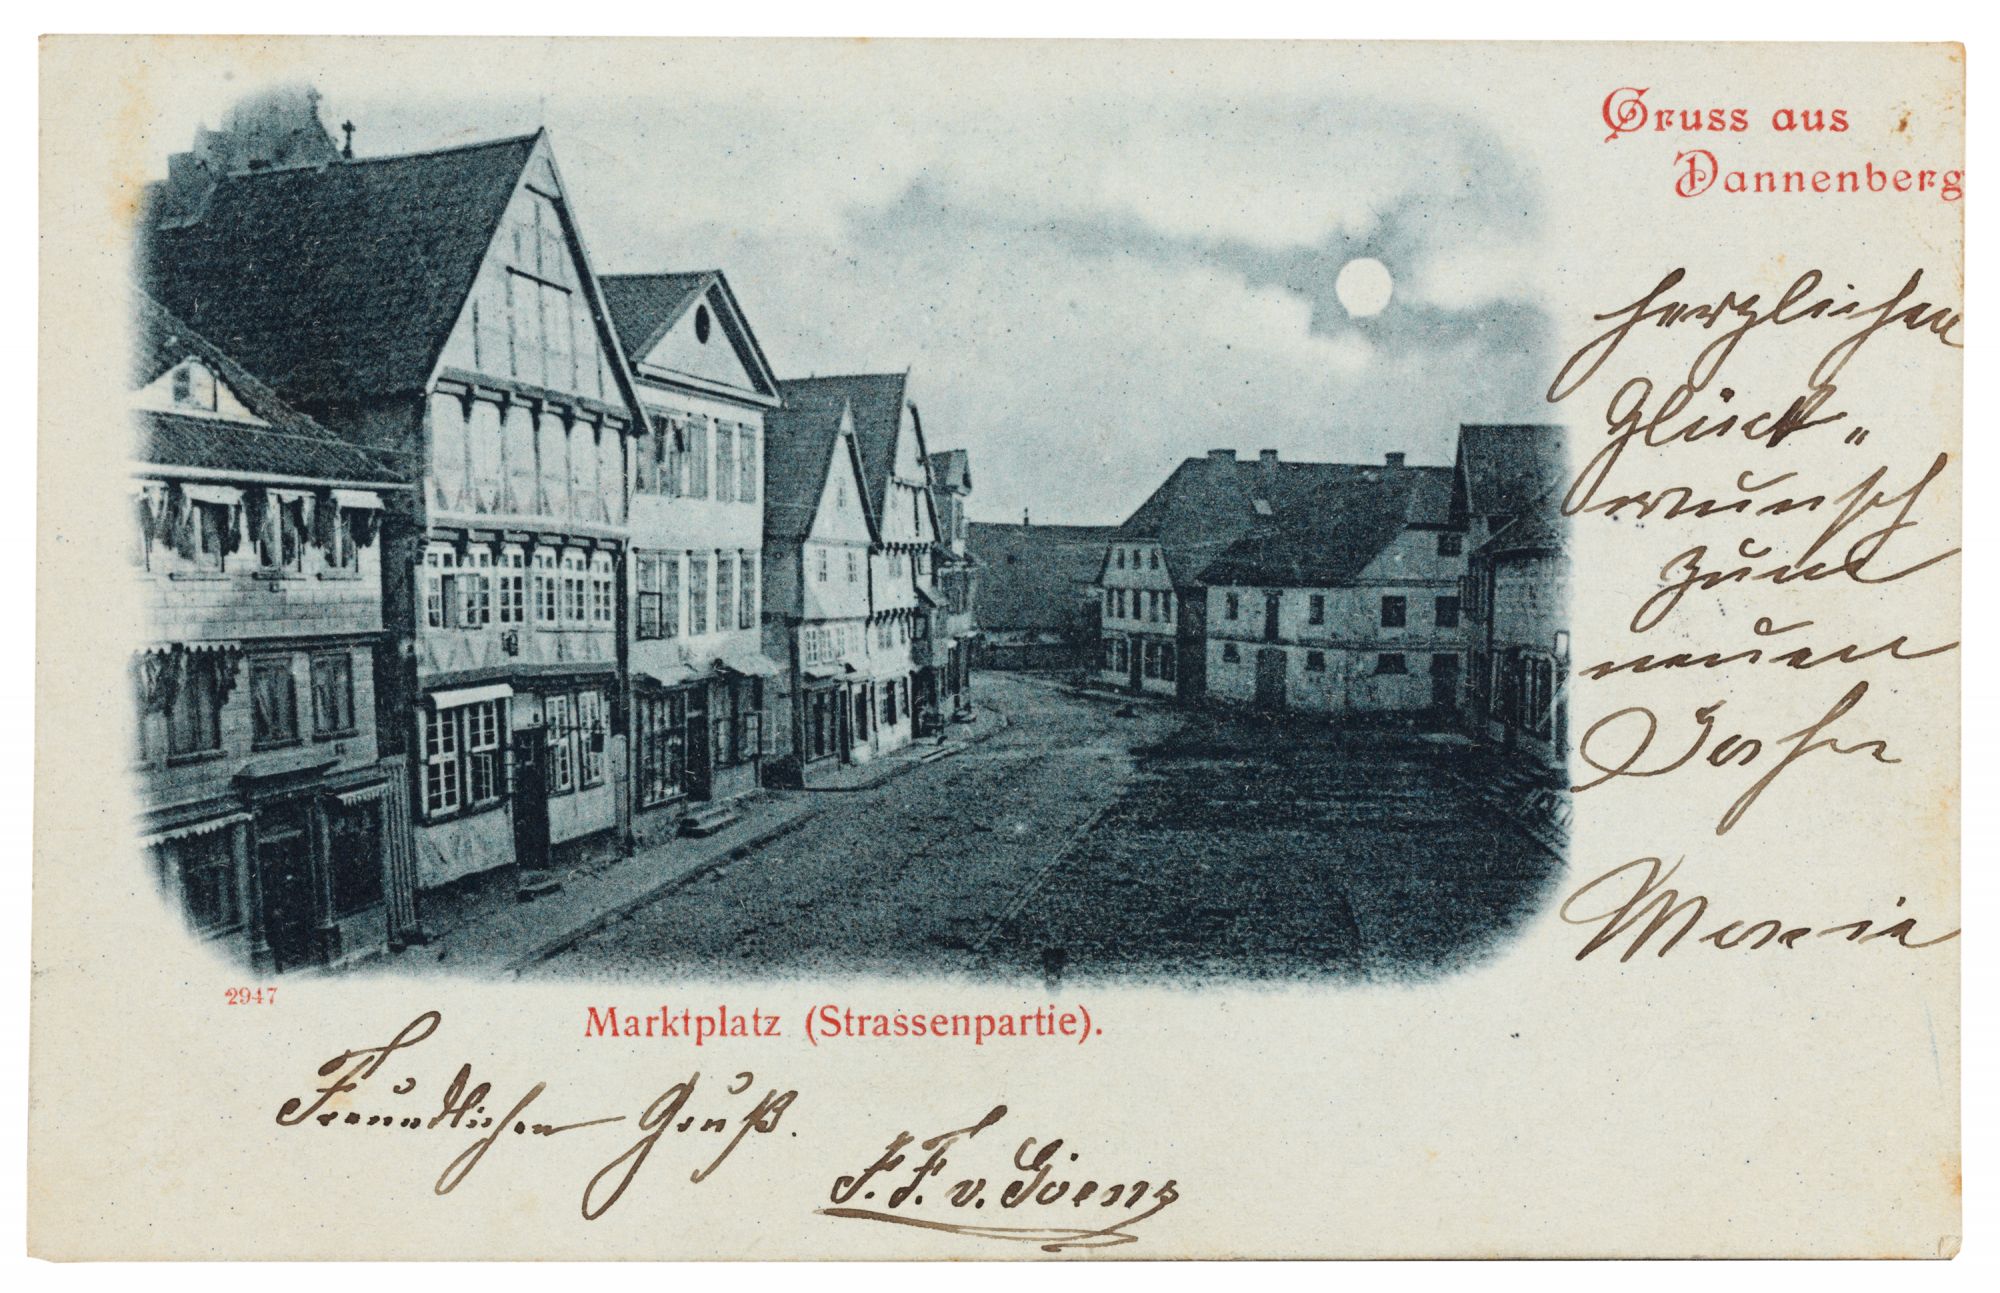 Gruss aus
Dannenberg
herzlichen
Glück„
wunsch
zum
neuen
Jahre
Marie
2947
Marktplatz (Strassenpartie).
Freundlichen Gruß.
F. F. v.